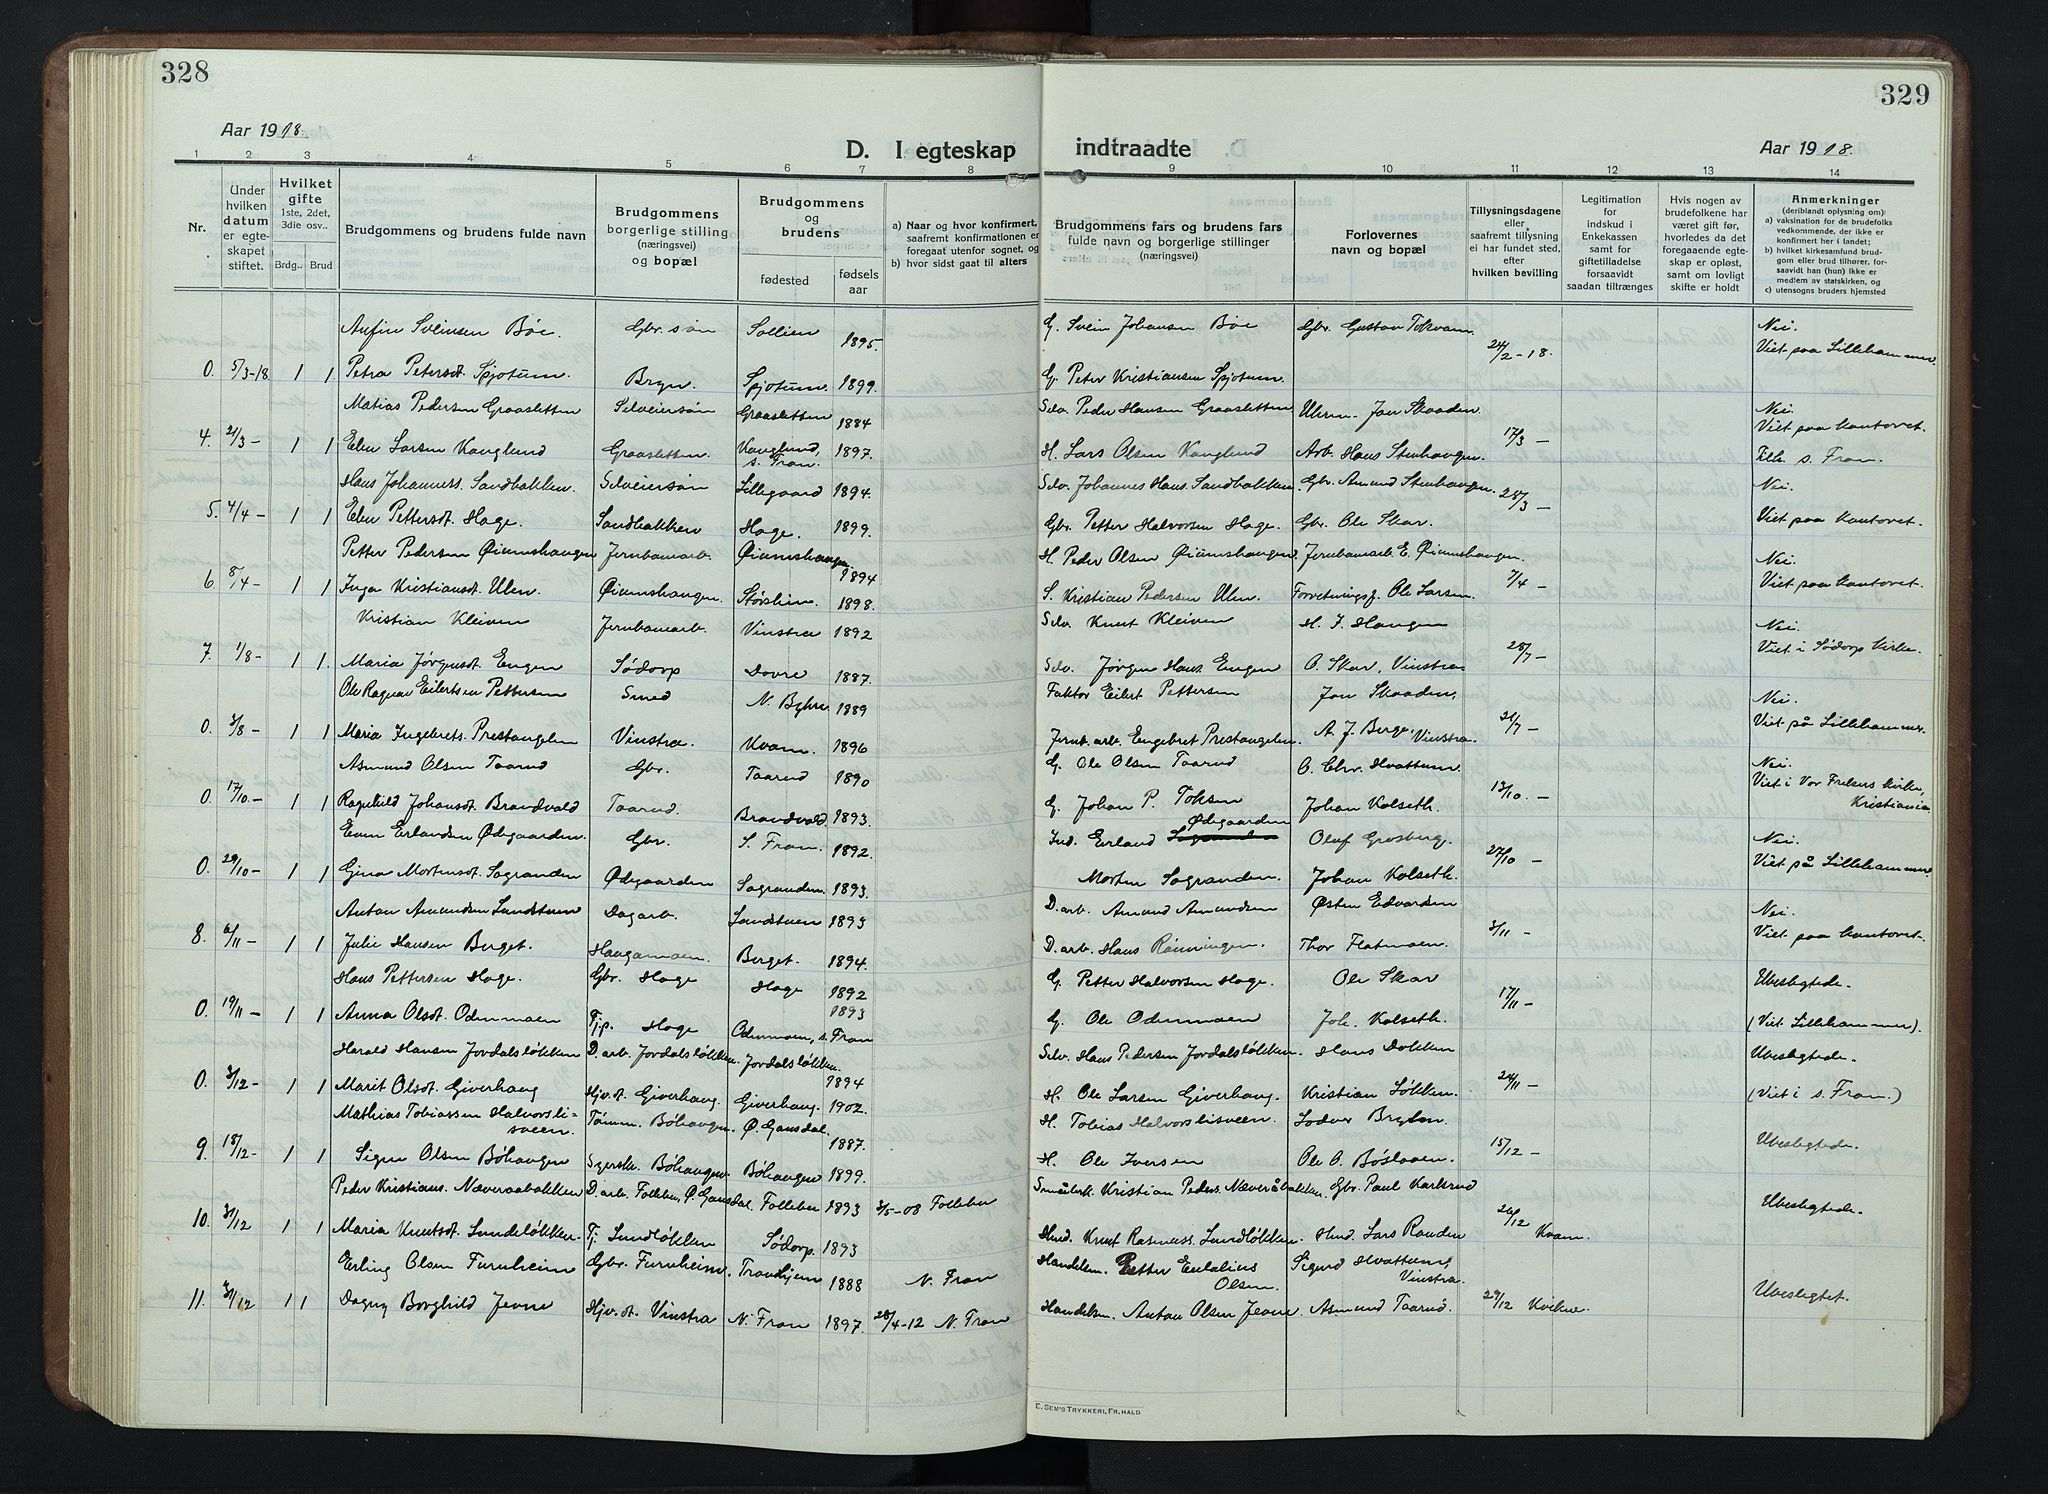 328
329
Aar 1918.
Aar 1918.
D. I egteskap
indtraadte
1 2 3 4 5 6 7 8
9 10 11 12 13 14
Nr.
Under hvilken datum er egteskapet stiftet.
Hvilket gifte 1ste, 2det, 3die osv..
Brdg.. Brud
Brudgommens og brudens fulde navn
Brudgommens borgerlige stilling (næringsvei) og bopæl
Brudgommens og brudens
fødested
fødsels aar
a) Naar og hvor konfirmert, saafremt konfirmationen er foregaat utenfor sognet, og
b) hvor sidst gaat til alters
Brudgommens fars og brudens fars fulde navn og borgerlige stillinger (næringsvei)
Forlovernes navn og bopæl
Tillysningsdagene eller, saafremt tillysning ei har fundet sted, efter hvilken bevilling
Legitimation for indskud i Enkekassen samt for giftetilladelse forsaavidt saadan tiltrænges
Hvis nogen av brudefolkene har været gift før, hvorledes da det foregaaende egteskap er opløst, samt om lovligt skifte er holdt
Anmerkninger (deriblandt oplysning om):
a) vaksination for de brudefolks vedkommende, der ikke er konfirmert her i landet;
b) hvilket kirkesamfund brudgom eller brud tilhører, forsaavidt han (hun) ikke er medlem av statskirken, og
c) utensogns bruders hjemsted
Anfin Sveinsen Bøe. Gbr. søn Sollien 1895. G. Svein Johansen Bøe Gbr. Gustav Tokvam 24/2-18. Nei. Viet paa Lillehammer.
0. 5/3-18 1 1 Petra Petersdt. Spjotum. Bryn. Spjotum. 1899. G. Peter Kristiansen Spjotum.
Matias Pedersen Graasletten Selveiersøn Graasletten 1884 Selv. Peder Hansen Graasletten Uhrm. Jon Skaaden. 17/3 - Nei. Viet paa kontoret.
4. 21/3 - 1 1 Elen Larsen Kanglund Graasletten. Kanglund, s. Fron. 1897. H. Lars Olsen Kanglund Arb. Hans Stenhaugen. Tilh. s. Fron.
Hans Johanness. Sandbakken. Selveiersøn Lillegaard 1894. Selv. Johannes Hans. Sandbakken. Gbr. Amund Stenhaugen. 28/3 - Nei.
5. 4/4 - 1 1 Elen Pettersdt. Hage. Sandbakken Hage. 1899. Gbr. Petter Halvorsen Hage. Gbr. Ole Skar. Viet paa kontoret.
Petter Pedersen Øiumshaugen Jernbanearb. Øiumshaugen 1894 H. Peder Olsen Øiumshaugen Jernbanearb. E. Øiumshaugen. 7/4 - Nei.
6. 8/4 - 1 1 Inga Kristiansdt. Ulen. Øiumshaugen. 1898. S. Kristian Pedersen Ulen. Ole Larsen. Viet paa kontoret.
Kristian Kleiven Jernbanearb. Vinstra 1892 Selv. Knut Kleiven H. J. Haugen 28/7 - Nei.
7. 1/8 - 1 1. Maria Jørgensdt. Engen Sødorp Dovre 1887. Selv. Jørgen Hans. Engen O. Skar, Vinstra. Viet i Sødorp Kirke.
Ole Ragnar Eilertsen Pettersen Smed 1889 Faktor Eilert Pettersen Jon Skaaden, 21/7 - Nei.
0. 3/8 - 1 1 Maria Ingebrets. Prestangelen Vinstra. Kvam. 1896 Jernb. arb. Engebret Prestangelen. A. J. Berge, Vinstra. Viet på Lillehammer.
Asmund Olsen Taarud Gbr. Taarud 1890 G. Ole Olsen Taarud O. Chr. Hvattum. 13/10. - Nei.
0. 17/10. - 1 1 Ragnhild Johansdt. Brandvold Taarud. Brandvold. 1893. G. Johan P. Toksen Johan Kolseth. Viet i Vor Frelsers kirke, Kristiania
Even Erlandsen Ødegaarden. Gbr. S. Fron. 1892. Ind. Erland Ødegaarden Oluf Grosberg. 27/10 - Nei.
0. 29/10 - 1 1 Gina Mortensdt. Sogranden Ødegaarden Sogranden. 1893. Morten Sogranden. Johan Kolseth. Viet på Lillehammer.
Anton Amundsen Sandstuen Dagarb. Sandstuen 1893 D. arb. Amund Amundsen Østen Edvardsen 3/11 - Nei.
8. 6/11 - 1 1 Julie Hansen Berget. Haugamoen. Berget. 1894. D. arb. Hans Rønningen. Thor Flatmoen. Viet paa kontoret.
Hans Pettersen Hage. Gbr. Hage Hage 1892 G. Petter Halvorsen Hage. Ole Skar 17/11 - Ubeslegtede.
0. 19/11 - 1 1 Anna Olsdt. Odenmoen Tjp. Hage Odenmoen, s. Fron 1893 G. Ole Odenmoen Joh. Kolseth. (Viet Lillehammer).
Harald Hansen Jordalsløkken D. arb. Jordalsløkken. Jordalsløkken. 1894 Selv. Hans Pedersen Jordalsløkken. Hans Dokken 24/11 - Ubeslegtede.
0. 3/12 - 1 1 Marit Olsdt. Giverhaug Hjv. dt. Giverhaug. Giverhaug. 1902. H. Ole Larsen Giverhaug. Kristian Løkken. (Viet i s. Fron.)
Mathias Tobiassen Halvorslisveen. Tømm. Bøhaugen. Ø. Gausdal. 1887. H. Tobias Halvorslisveen. 15/12 - Ubeslegtede.
9. 18/12 - 1 1 Signe Olsen Bøhaugen Syersk. Bøhaugen. Bøhaugen 1899. H. Ole Iversen Ole O. Bøslaaen.
Peder Kristians. Næveraabakken D. arb. Follebu, Ø. Gausdal. Follebu 1893 3/5-08 Follebu Småbrk. Kristian Peders. Næveråbakken. Gbr. Paul Karlsrud 26/12 Kvam. Ubeslegtede.
10. 31/12 1 1 Maria Knutsdt. Sundeløkken. Tj. Sundløkken Sødorp. 1893 Hmd. Knut Rasmuss. Sundløkken. Hmd. Lars Randen
Erling Olsen Furuheim Gbr. Furuheim. Trondhjem 1888 N. Fron Handelsm. Petter Eulalius Olsen. Sigurd Hvattum, Vinstra. 29/12 Kvikne. Ubeslegtet.
11. 31/12 1 1 Dagny Borghild Jevne Hjv. dt. Vinstra N. Fron 1897. 28/4-12 N. Fron Handelsm. Anton Olsen Jevne. Asmund Taarud.
E. SEM'S TRYKKERI, FR. HALD